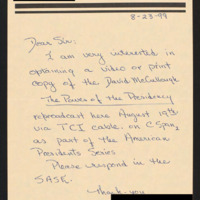 8-23-99
Dear Sir:
I am very interested in
obtaining a video or print
copy of the David McCullough
The Power of the Presidency
rebroadcast here August 19th
via TCI cable on C Span 2
as part of the American
Presidents Series
Please respond in the
SASE.
Thank you